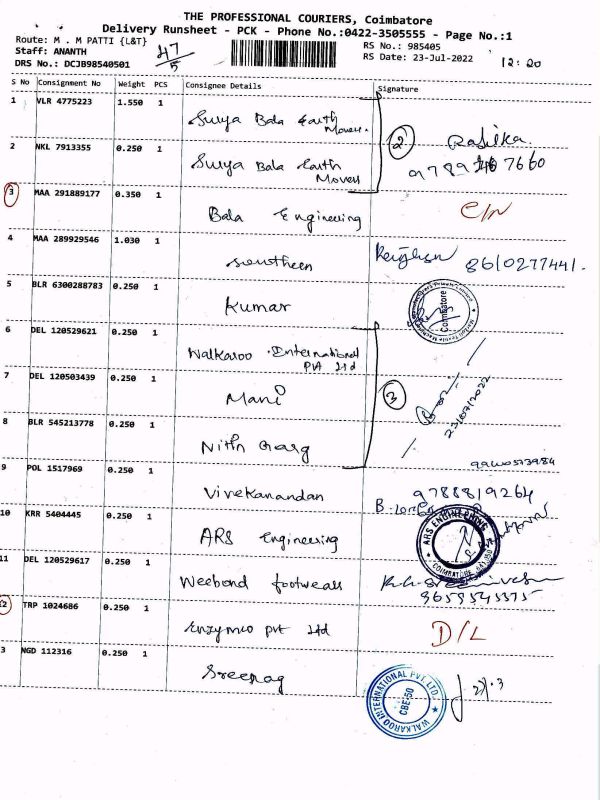 THE PROFESSIONAL COURIERS, Coimbatore
Delivery Runsheet - PCK - Phone No.:0422-3505555 - Page No.:1
Route: M . M PATTI {L&T}
Staff: ANANTH
DRS No.: DCJB98540501
47/5
RS No.: 985405
RS Date: 23-Jul-2022
12:20
S No Consignment No Weight PCS Consignee Details Signature
1 VLR 4775223 1.550 1 Surya Bala Earth Movers.
2 NKL 7913355 0.250 1 Surya Bala Earth Movers
2
3 MAA 291889177 0.350 1 Bala Engineering
4 MAA 289929546 1.030 1 Southern 8610277441.
5 BLR 6300288783 0.250 1 Kumar
Coimbatore
6 DEL 120529621 0.250 1 Walkaroo International Pvt Ltd
7 DEL 120503439 0.250 1 Mani
3
23/07/2022
8 BLR 545213778 0.250 1 Nitin Garg
9 POL 1517969 0.250 1 Vivekanandan 9788819264
10 KRR 5404445 0.250 1 ARS Engineering
ARS ENGINEERING
COIMBATORE
11 DEL 120529617 0.250 1 Weebond footwears
9659545575
12 TRP 1024686 0.250 1 Enzymco pvt ltd D/L
3 NGD 112316 0.250 1 Sreerag
WALKAROO INTERNATIONAL PVT. LTD.
CBE-50